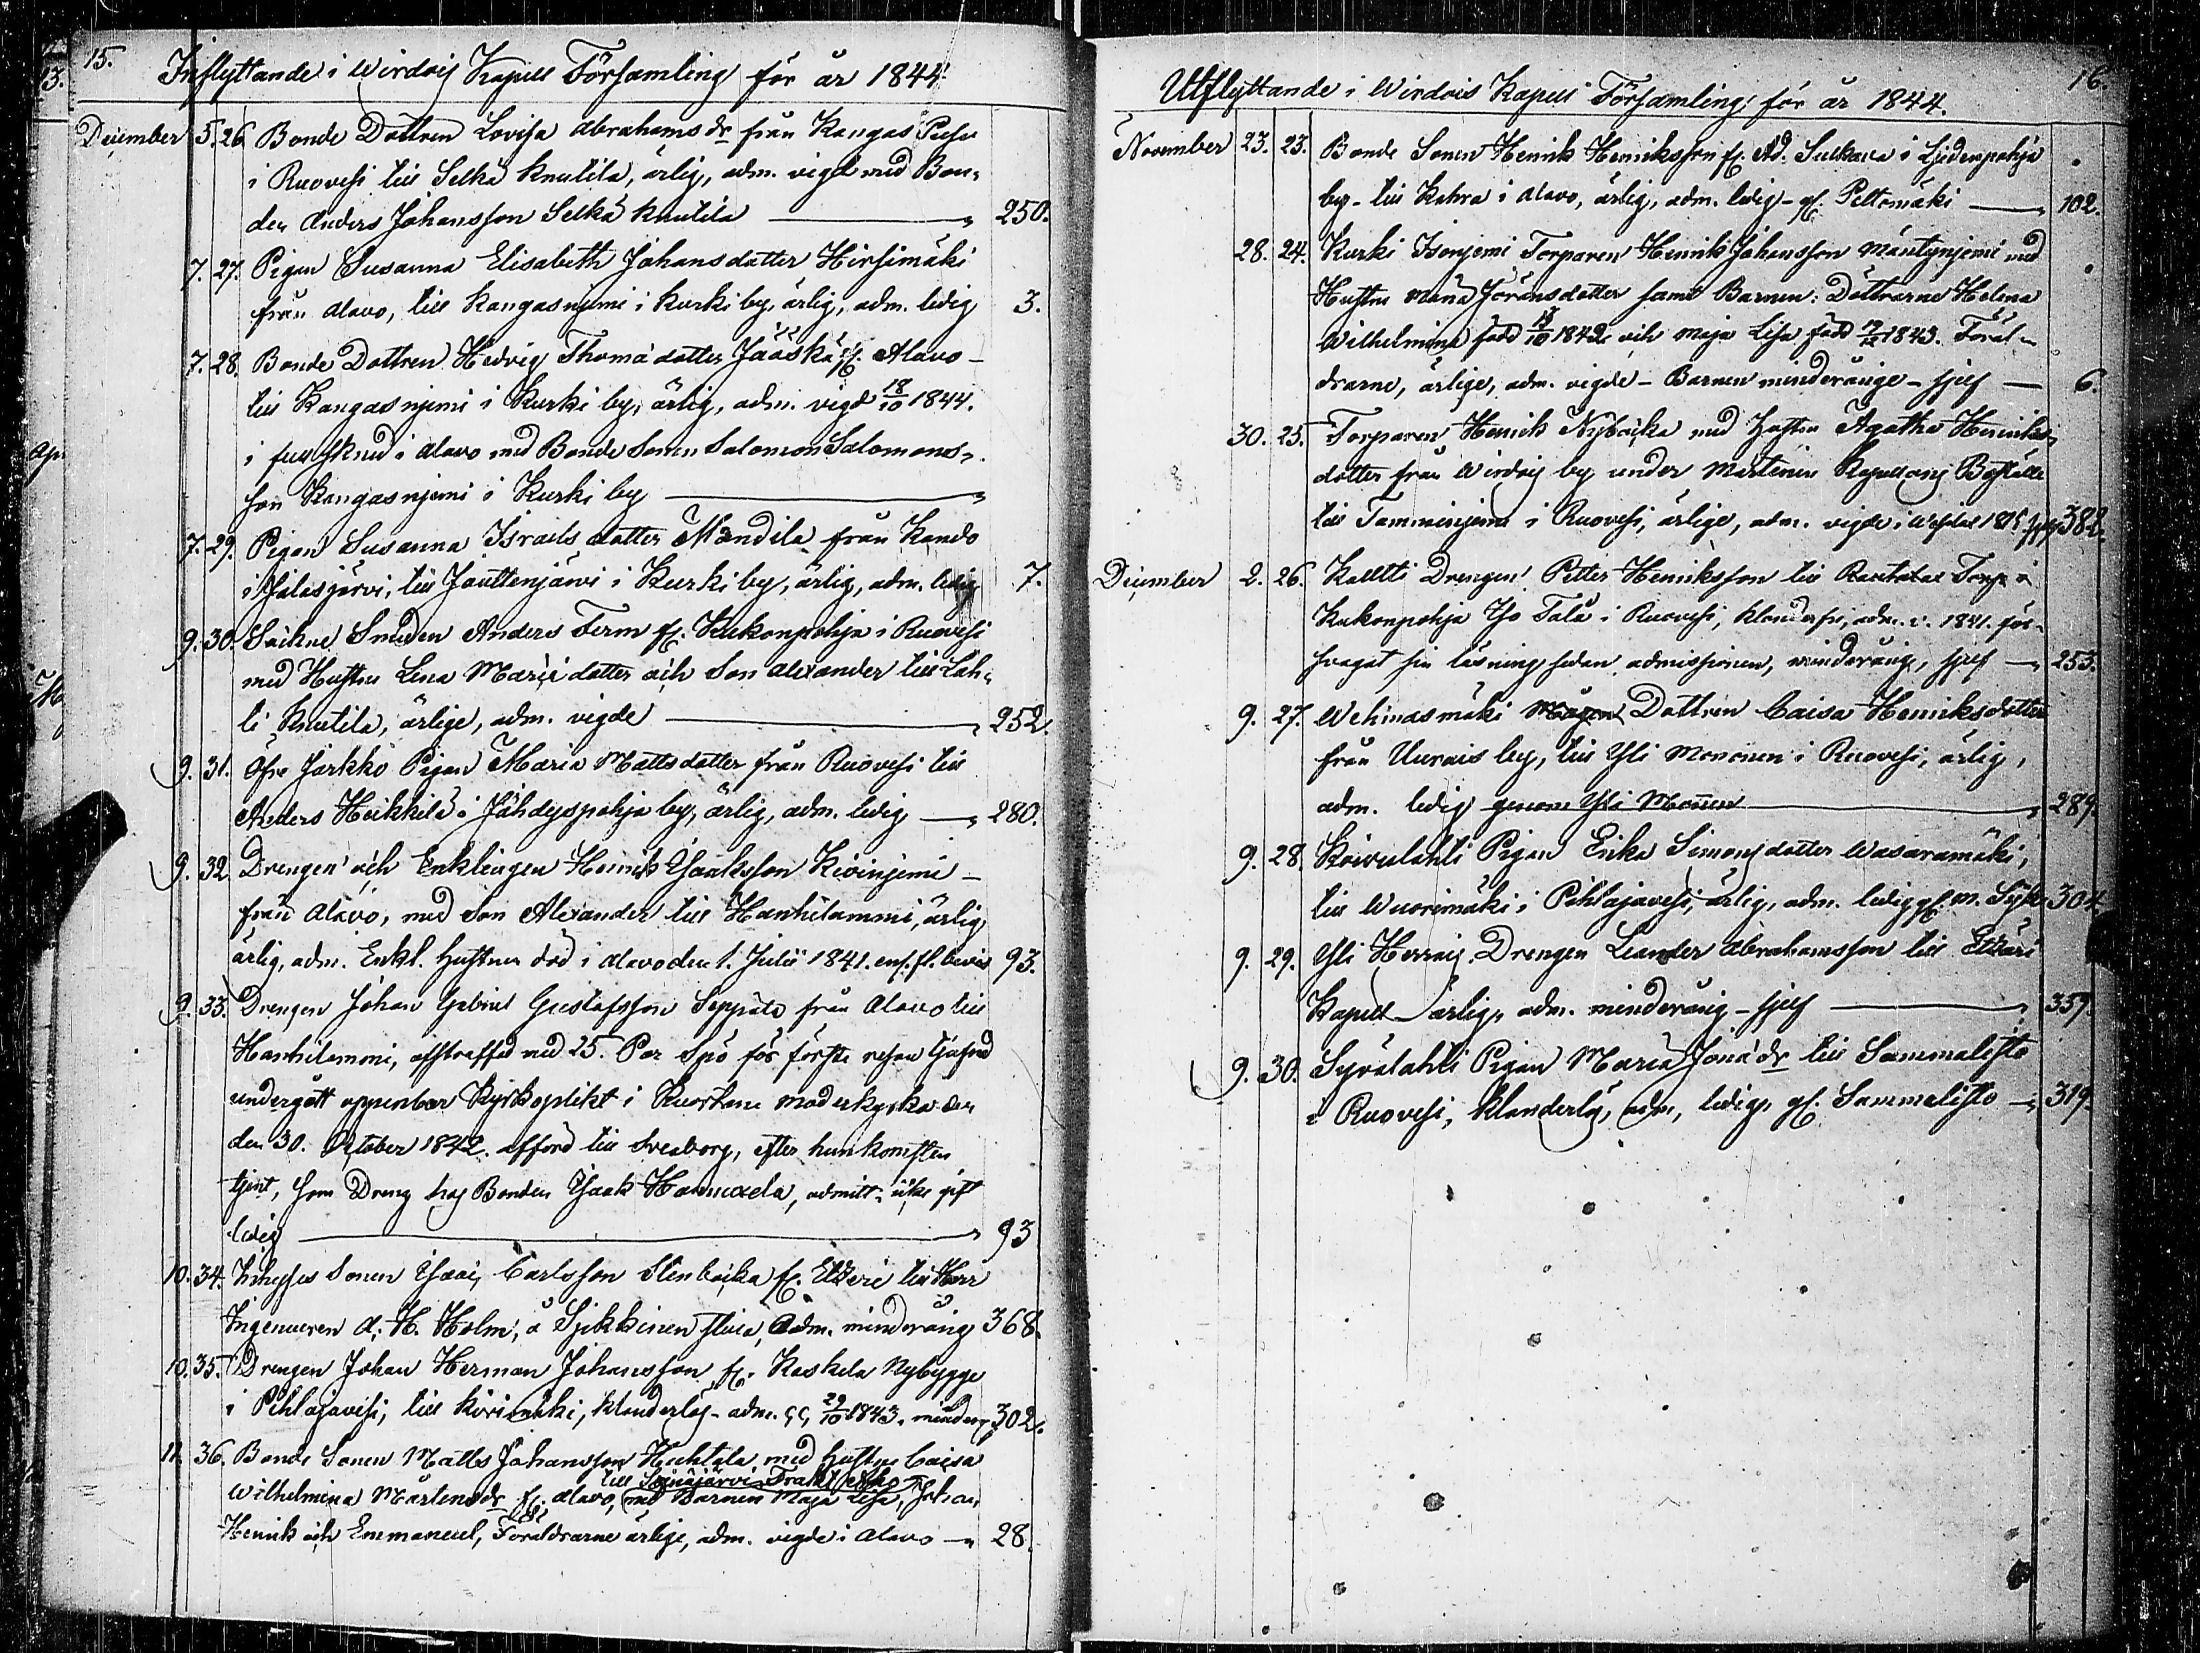 15.
Inflyttande i Wirdois Kapell Församling för år 1844.
December 5. 26. Bonde Dottren Lovisa Abrahams dr från Kangas
i Ruovesi till Selkä Knutila, ärlig, adm. vigd med Bon-
den Anders Johansson Selkä Knutila — 250.
7. 27. Pigan Susanna Elisabeth Johansdotter Hirsimäki
från Alavo, till Kangasnjemi i Kurki by, ärlig, adm. ledig 3.
7. 28. Bonde Dottren Hedvig Thomä dotter Jääskä fr. Alavo -
till Kangasnjemi i Kurki by, ärlig, adm. vigd 18/10 1844.
i Alavo med Bonde Sonen Salomon Salomons-
son Kangasnjemi i Kurki by —
7. 29. Pigan Susanna Israels dotter Mandila från Kando
i Jalasjärvi, till Jäuttenjärvi i Kurki by, ärlig, adm. ledig 7.
9. 30. Sockne Smeden Anders Ferm fr. Kukonpohja i Ruovesi
med Hustru Lena Mariä dotter och Son Alexander till Lah-
ti Knutila, ärlige, adm. vigde — 252.
9. 31. Öfre Järkkö Pigan Maria Mattsdotter från Ruovesi till
Anders Heikkilä i Jähdyspohja by, ärlig, adm. ledig — 280.
9. 32. Drengen och Enklingen Henrik Isaaksson Kivinjemi -
från Alavo, med Son Alexander till Hanhilammi, ärlig,
ärlig, adm. Enkl. Hustrun död i Alavo den 1. Julii 1841. enl. fl. bevis 93.
9. 33. Drengen Johan Gabriel Gustafsson Seppälä från Alavo till
Hanhilammi, afstraffad med 25. Par Spö för första resan tjufnad
undergått oppenbar Kyrkoplikt i Kuortane moderkyrka den
den 30. October 1842. afförd till Sveaborg, efter hemkomsten
tjent, som Dreng hos Bonden Isaak Hannuxela, admitt. icke gift
ledig — 93
10. 34. Inhyses Sonen Isaac Carlsson Stenbacka fr. Etzeri till Herr
Ingenieuren A. H. Holm, å Sjikkinen, adm. minderårig 368.
10. 35. Drengen Johan Herman Johansson fr. Koskela Nybygge
i Pihlajavesi, till Körimäki, klanderlös - adm. 29/10 1843. minderg 302.
11. 36. Bonde Sonen Matts Johansson Huhtala med Hustru Caisa
till Sejnäjärvi
Wilhelmina Mårtensdr fr. Alavo, med Barnen Maja Lisa, Johan,
Henrik och Emmanuel, Föräldrarne ärlige, adm. vigde i Alavo — 28.
16.
Utflyttande i Wirdois Kapell Församling för år 1844.
November 23. 23. Bonde Sonen Henrik Henriksson fr. Ad. Sulkava i Liedenpohja
by - till Kahra i Alavo, ärlig, adm. ledig - gf. Peltomäki — 102.
28. 24. Kurki Isonjemi Torparen Henrik Johansson Mäntynjemi med
Hustru Maria Jöransdotter samt Barnen: Döttrarne Helena
Wilhelmina född 18/10 1842 och Maja Lisa född 1843. Föräl-
drarne, ärlige, adm. vigde - Barnen minderårige - sjelf — 6.
30. 25. Torparen Henrik Nybacka med Hustru Agatha Henriks
dotter från Wirdois by under Martinin Kapellans Boställe
till Tamminjemi i Ruovesi, ärlige, adm. vigde i 382.
December 2. 26. Kaltti Drengen Petter Henriksson till Rantalas Torp i
Kukonpohja Iso Tala i Ruovesi, klanderfri, adm. v. 1841. för-
svagat sin läsning sedan admissionen, minderårig, sjelf — 253.
9. 27. Wehmasmäki Dottren Caisa Henriksdotter
från Uurais by, till Yli Mononen i Ruovesi, ärlig,
adm. ledig genom Yli Monen — 289.
9. 28. Koivulahti Pigan Erika Simonsdotter Wasaramäki,
till Wuorimäki i Pihlajavesi, ärlig, adm. ledig gf. m. 304.
9. 29. Yli Herrais Drengen Leander Abrahamsson till Etzäri
Kapell - ärlig, adm. minderårig - sjelf — 357.
9. 30. Syvälahti Pigan Maria Jonä dr till Sammalisto
i Ruovesi, klanderlös, adm., ledig, gf. Sammalisto — 319.